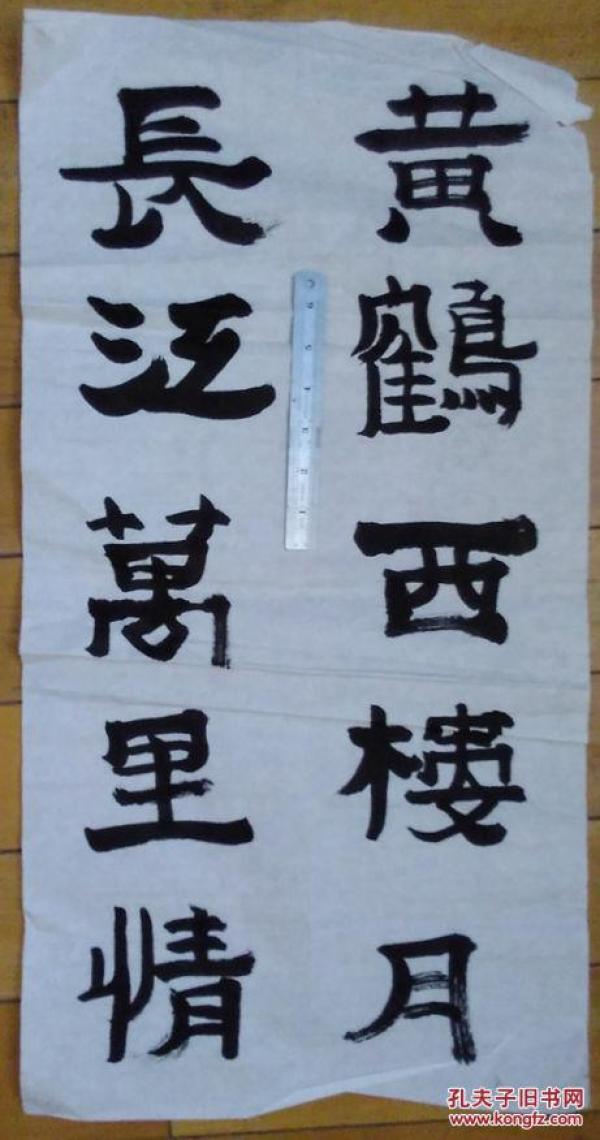 黄鶴西樓月
長江萬里情
孔夫子旧书网
www.kongfz.com